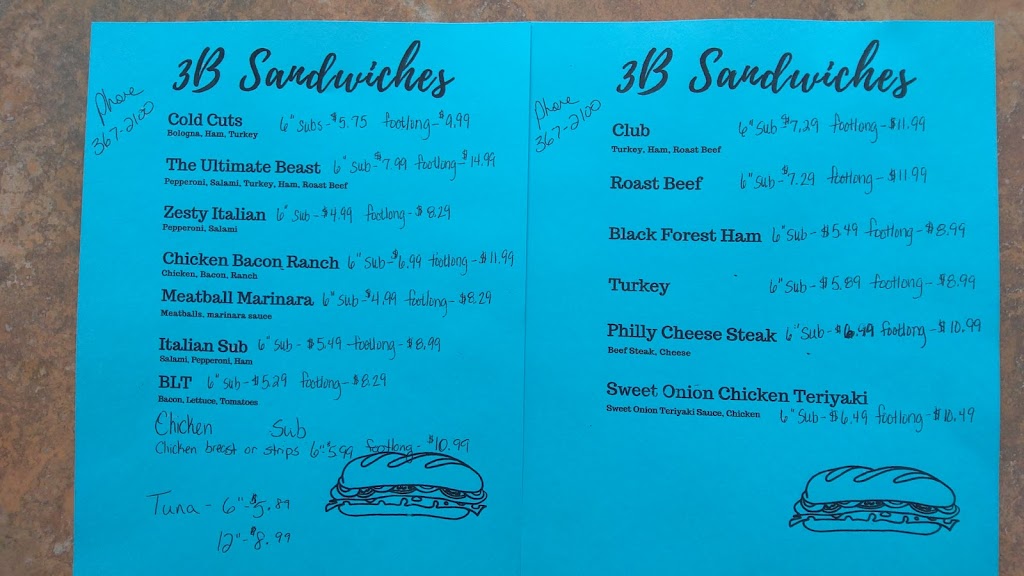 3B Sandwiches
Phone
367-2100
Cold Cuts 6" subs-$5.75 footlong-$9.99
Bologna, Ham, Turkey
The Ultimate Beast 6" Sub-$7.99 footlong-$14.99
Pepperoni, Salami, Turkey, Ham, Roast Beef
Zesty Italian 6" Sub-$4.99 footlong-$8.29
Pepperoni, Salami
Chicken Bacon Ranch 6" Sub-$6.99 footlong-$11.99
Chicken, Bacon, Ranch
Meatball Marinara 6" sub-$4.99 footlong-$8.29
Meatballs, marinara sauce
Italian Sub 6" sub-$5.49 footlong-$8.99
Salami, Pepperoni, Ham
BLT 6" sub-$5.29 footlong-$8.29
Bacon, Lettuce, Tomatoes
Chicken Sub
Chicken breast or strips 6"-$5.99 footlong-$10.99
Tuna - 6"-$5.89
12"-$8.99
3B Sandwiches
Phone
367-2100
Club 6" sub-$7.29 footlong-$11.99
Turkey, Ham, Roast Beef
Roast Beef 6" sub-$7.29 footlong-$11.99
Black Forest Ham 6" sub-$5.49 footlong-$8.99
Turkey 6" sub-$5.89 footlong-$8.99
Philly Cheese Steak 6" Sub-$6.49 footlong-$10.99
Beef Steak, Cheese
Sweet Onion Chicken Teriyaki
Sweet Onion Teriyaki Sauce, Chicken 6" Sub-$6.49 footlong-$10.49